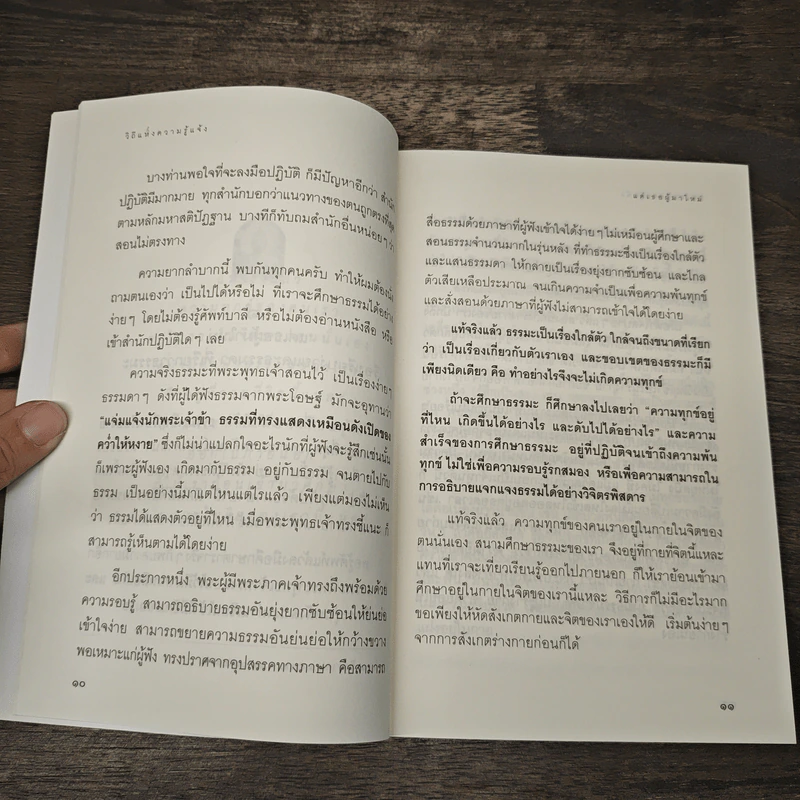 วิถีแห่งความรู้แจ้ง
บางท่านพอใจที่จะลงมือปฏิบัติ ก็มีปัญหาอีกว่า สำนัก
ปฏิบัติมีมากมาย ทุกสำนักบอกว่าแนวทางของตนถูกตรงที่สุด
ตามหลักมหาสติปัฏฐาน บางทีก็ทับถมสำนักอื่นหน่อยๆ ว่า
สอนไม่ตรงทาง
ความยากลำบากนี้ พบกันทุกคนครับ ทำให้ผมต้องนั่ง
ถามตนเองว่า เป็นไปได้หรือไม่ ที่เราจะศึกษาธรรมได้อย่าง
ง่ายๆ โดยไม่ต้องรู้ศัพท์บาลี หรือไม่ต้องอ่านหนังสือ หรือ
เข้าสำนักปฏิบัติใดๆ เลย
ความจริงธรรมะที่พระพุทธเจ้าสอนไว้ เป็นเรื่องง่ายๆ
ธรรมดาๆ ดังที่ผู้ได้ฟังธรรมจากพระโอษฐ์ มักจะอุทานว่า
“แจ่มแจ้งนักพระเจ้าข้า ธรรมที่ทรงแสดงเหมือนดังเปิดของ
คว่ำให้หงาย” ซึ่งก็ไม่น่าแปลกใจอะไรนักที่ผู้ฟังจะรู้สึกเช่นนั้น
ก็เพราะผู้ฟังเอง เกิดมากับธรรม อยู่กับธรรม จนตายไปกับ
ธรรม เป็นอย่างนี้มาแต่ไหนแต่ไรแล้ว เพียงแต่มองไม่เห็น
ว่า ธรรมได้แสดงตัวอยู่ที่ไหน เมื่อพระพุทธเจ้าทรงชี้แนะ ก็
สามารถรู้เห็นตามได้โดยง่าย
อีกประการหนึ่ง พระผู้มีพระภาคเจ้าทรงถึงพร้อมด้วย
ความรอบรู้ สามารถอธิบายธรรมอันยุ่งยากซับซ้อนให้ย่นย่อ
เข้าใจง่าย สามารถขยายความธรรมอันย่นย่อให้กว้างขวาง
พอเหมาะแก่ผู้ฟัง ทรงปราศจากอุปสรรคทางภาษา คือสามารถ
๑๐
แด่เธอผู้มาใหม่
สื่อธรรมด้วยภาษาที่ผู้ฟังเข้าใจได้ง่ายๆ ไม่เหมือนผู้ศึกษาและ
สอนธรรมจำนวนมากในรุ่นหลัง ที่ทำธรรมะซึ่งเป็นเรื่องใกล้ตัว
และแสนธรรมดา ให้กลายเป็นเรื่องยุ่งยากซับซ้อน และไกล
ตัวเสียเหลือประมาณ จนเกินความจำเป็นเพื่อความพ้นทุกข์
และสั่งสอนด้วยภาษาที่ผู้ฟังไม่สามารถเข้าใจได้โดยง่าย
แท้จริงแล้ว ธรรมะเป็นเรื่องใกล้ตัว ใกล้จนถึงขนาดที่เรียก
ว่า เป็นเรื่องเกี่ยวกับตัวเราเอง และขอบเขตของธรรมะก็มี
เพียงนิดเดียว คือ ทำอย่างไรจึงจะไม่เกิดความทุกข์
ถ้าจะศึกษาธรรมะ ก็ศึกษาลงไปเลยว่า “ความทุกข์อยู่
ที่ไหน เกิดขึ้นได้อย่างไร และดับไปได้อย่างไร” และความ
สำเร็จของการศึกษาธรรมะ อยู่ที่ปฏิบัติจนเข้าถึงความพ้น
ทุกข์ ไม่ใช่เพื่อความรอบรู้รกสมอง หรือเพื่อความสามารถใน
การอธิบายแจกแจงธรรมได้อย่างวิจิตรพิสดาร
แท้จริงแล้ว ความทุกข์ของคนเราอยู่ในกายในจิตของ
ตนนั่นเอง สนามศึกษาธรรมะของเรา จึงอยู่ที่กายที่จิตนี้แหละ
แทนที่เราจะเที่ยวเรียนรู้ออกไปภายนอก ก็ให้เราย้อนเข้ามา
ศึกษาอยู่ในกายในจิตของเรานี้แหละ วิธีการก็ไม่มีอะไรมาก
ขอเพียงให้หัดสังเกตกายและจิตของเราเองให้ดี เริ่มต้นง่ายๆ
จากการสังเกตร่างกายก่อนก็ได้
๑๑